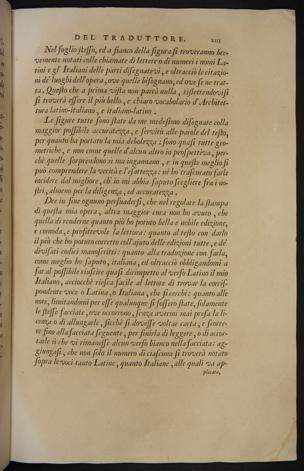 DEL TRADUTTORE. XIII
Nel foglio stesso, ed a fianco della figura si troveranno bre-
vemente notati colle chiamate di lettere o di numeri i nomi La-
tini e gl' Italiani delle parti disegnatevi, e oltracciò le citazio-
ni de' luoghi dell'opera, ove quelle bisognano, ed ove se ne trat-
ta. Questo che a prima vista non parrà nulla, riflettendovisi
si troverà essere il più bello, e chiaro vocabolario d'Architet-
tura latino-italiano, e italiano-latino.
Le figure tutte sono state da me medesimo disegnate colla
maggior possibile accuratezza, e servitù alle parole del testo,
per quanto ha portato la mia debolezza: sono quasi tutte geo-
metriche, e non come quelle d'alcun altro in prospettiva, per-
chè quelle sorprendono sì ma ingannano, e in queste meglio si
può comprendere la verità e l'esattezza: nè ho trascurato farle
incidere dal migliore, ch' io mi abbia saputo scegliere fra i no-
stri, almeno per la diligenza, ed accuratezza.
Dee in fine ognun persuadersi, che nel regolare la stampa
di questa mia opera, altra maggior cura non ho avuto, che
quella di renderne quanto più ho potuto bella e nobile edizione,
e comoda, e profittevole la lettura: quanto al testo con darlo
il più che ho potuto corretto coll'ajuto delle edizioni tutte, e de'
divisati codici manscritti: quanto alla traduzione con farla,
come meglio ho saputo, italiana, ed oltracciò obbligandomi a
far al possibile riuscire quasi dirimpetto al verso Latino il mio
Italiano, acciocchè riesca facile al lettore di trovar la corris-
pondente voce o Latina, o Italiana, che si cerchi: quanto alle
note, limitandomi per esse qualunque si fossero state, solamente
le stesse facciate, ove occorrono, senza avermi mai presa la li-
cenza o di allungarle, sicchè si dovesse voltar carta, e scorre-
re fino alla facciata seguente, per finirla di leggere, o di accor-
tarle sì che vi rimanesse alcun verso bianco nella facciata: ag-
giungasi, che non solo il numero di ciascuna si troverà notato
sopra le voci tanto Latine, quanto Italiane, alle quali va ap-
plicata,